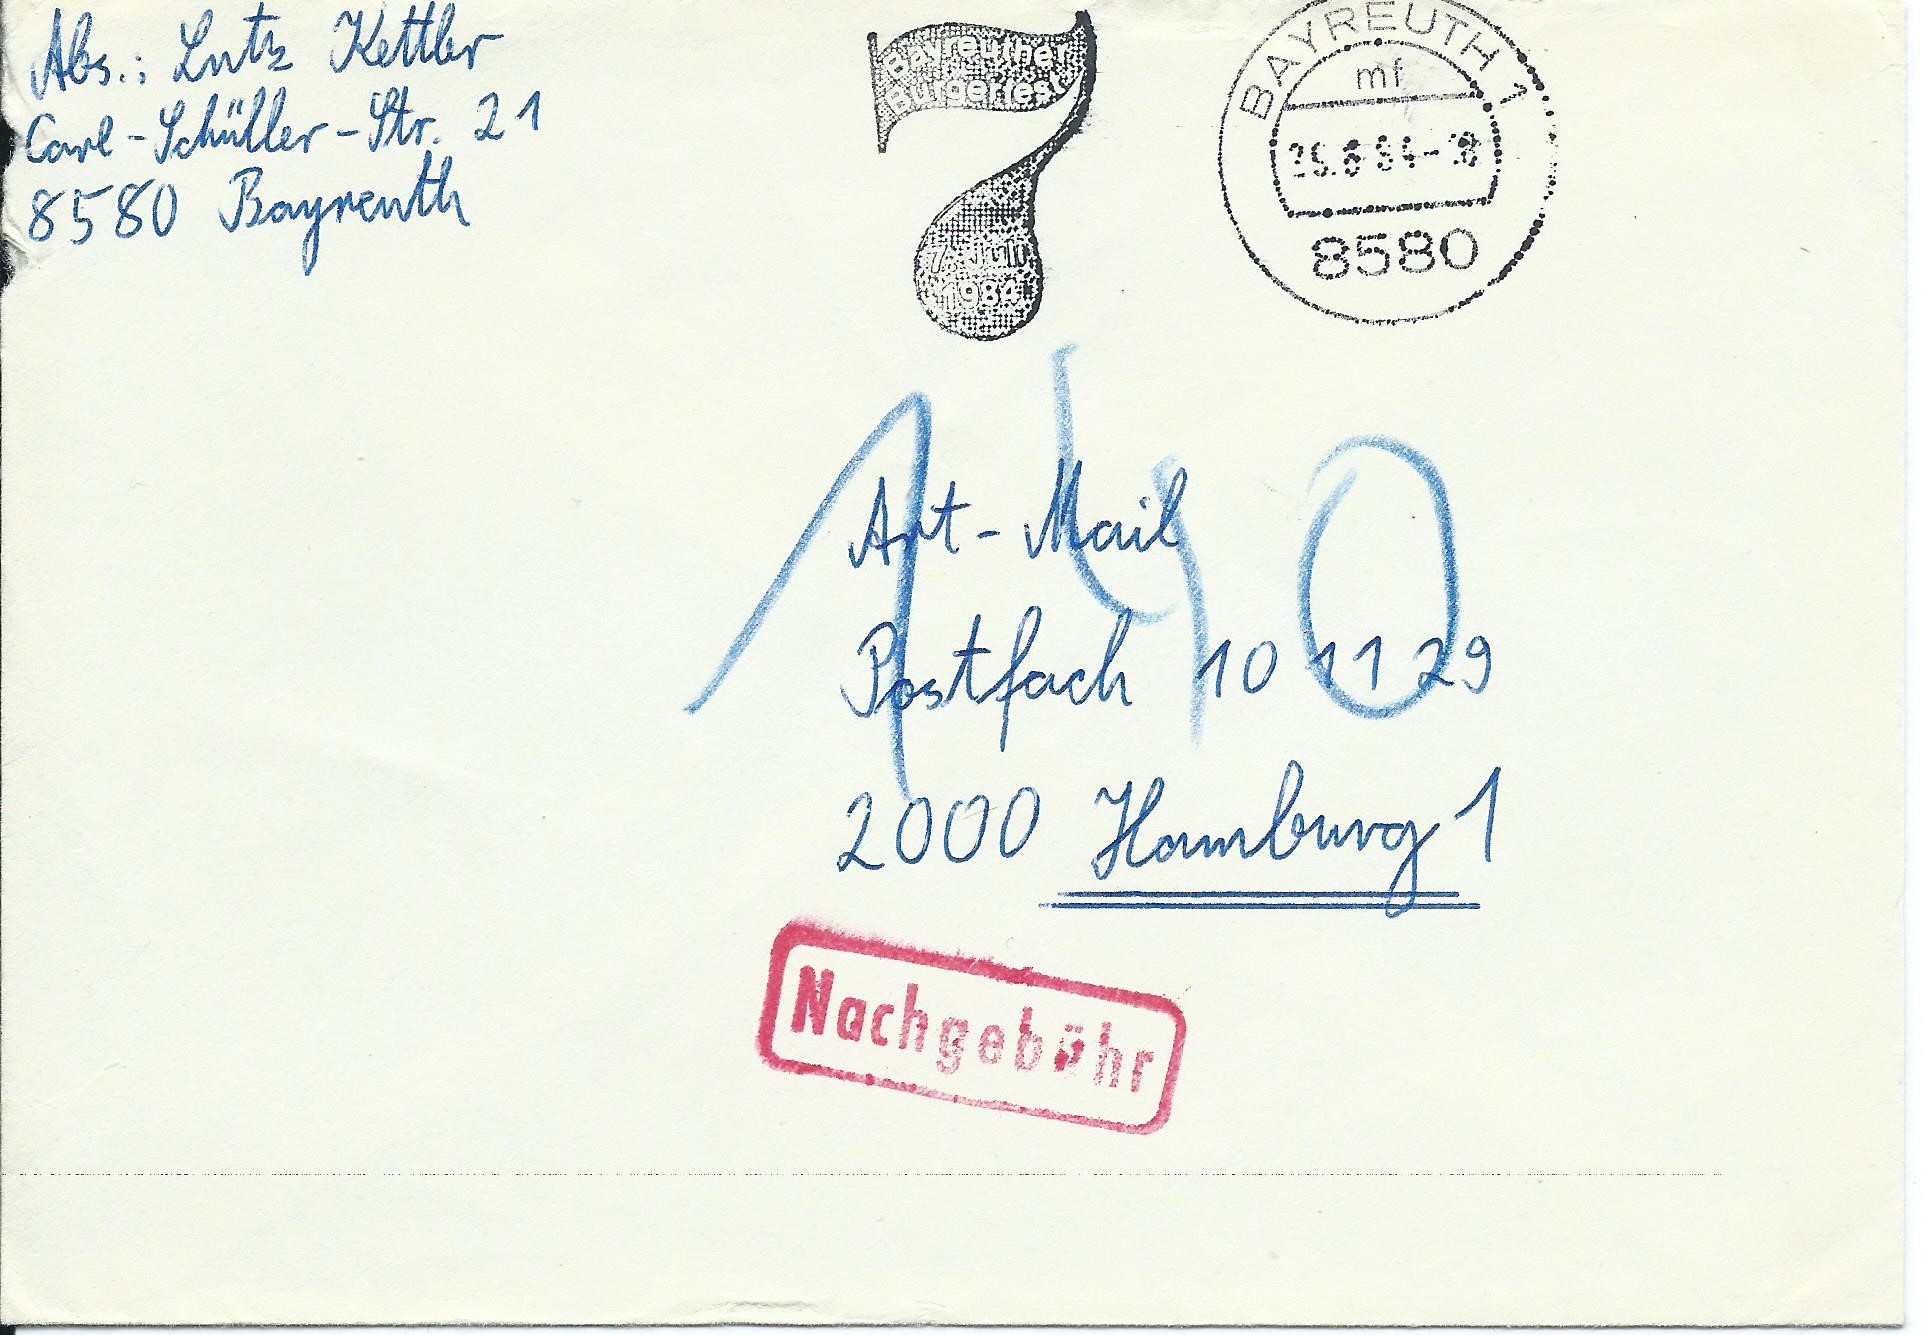 Abs.: Lutz Kettler
Carl-Schüller-Str. 21
8580 Bayreuth
Bayreuther
Bürgerfest
7. Juli
1984
BAYREUTH 1
mf
8580
140
Art-Mail
Postfach 10 11 29
2000 Hamburg 1
Nachgebühr